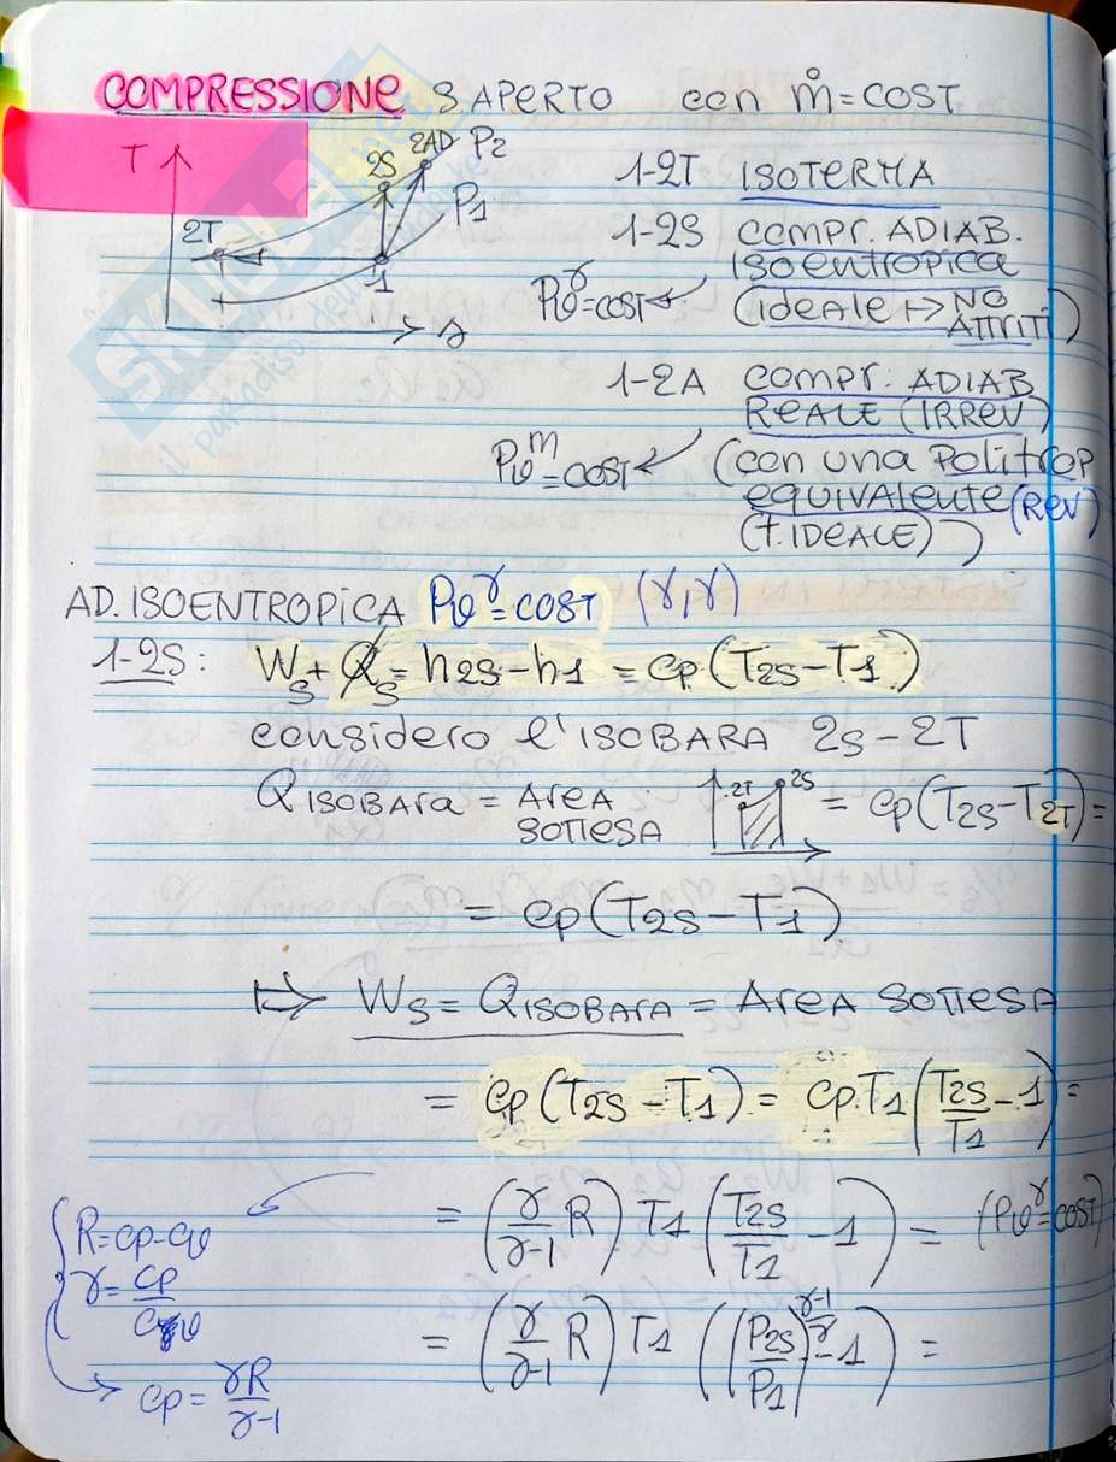 COMPRESSIONE S APERTO con ṁ=COST
T
2S
2AD
P2
P1
2T
1
s
1-2T ISOTERMA
1-2S COMPR. ADIAB.
ISOENTROPICA
Pv^γ=COST (IDEALE → NO
ATTRITI)
1-2A COMPR. ADIAB
REALE (IRREV)
Pv^m=COST (con una POLITROP
EQUIVALENTE (REV)
(T.IDEALE))
AD. ISOENTROPICA Pv^γ=COST (γ,γ)
1-2S: Ws+Qs=h2s-h1=cp(T2s-T1)
considero l'ISOBARA 2s-2T
QISOBARA = AREA
SOTTESA
2T 2S
= cp(T2s-T2T)=
= cp(T2s-T1)
⇒ Ws=QISOBARA=AREA SOTTESA
= cp(T2s-T1)=cp.T1(T2s/T1-1)=
= (γ/γ-1 R) T1 (T2s/T1-1) = (Pv^γ=COST)
R=cp-cv
γ=cp/cv
= (γ/γ-1 R) T1 ((P2s/P1)^γ-1/γ-1) =
cp=γR/γ-1
SKUOLA.net
il paradiso dello